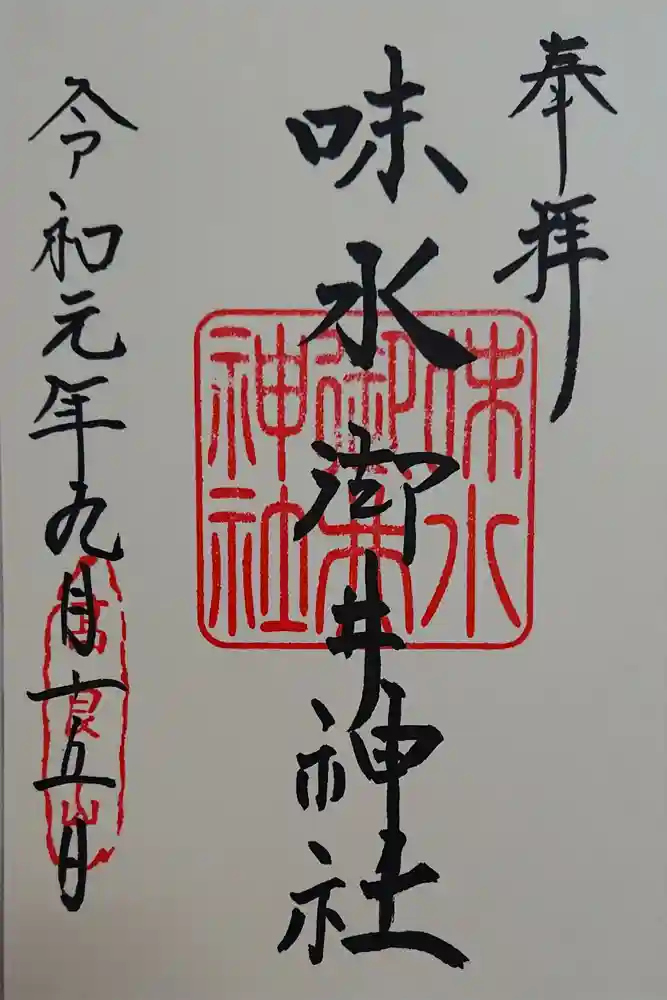 奉拝
味水御井神社
味水
御井
神社
令和元年九月十五日
高良山